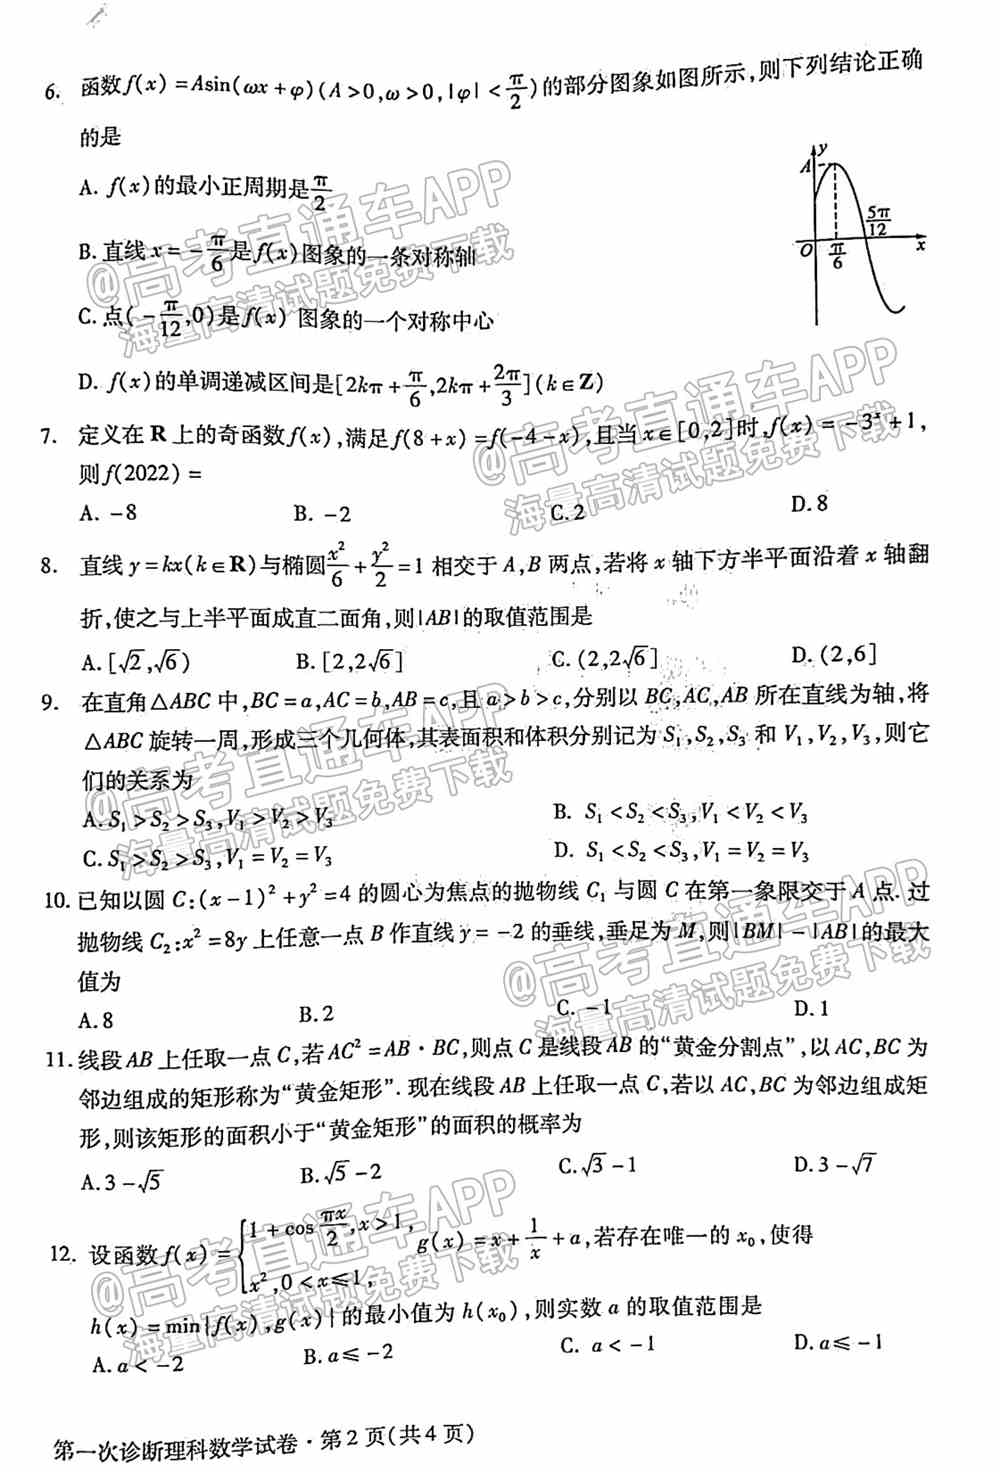 6. 函数f(x)=Asin(ωx+φ)(A>0,ω>0,|φ|<π/2)的部分图象如图所示,则下列结论正确
的是
A. f(x)的最小正周期是π/2
B.直线x=-π/6是f(x)图象的一条对称轴
C.点(-π/12,0)是f(x)图象的一个对称中心
D. f(x)的单调递减区间是[2kπ+π/6,2kπ+2π/3](k∈Z)
y
A
O
π/6
5π/12
x
7. 定义在R上的奇函数f(x),满足f(8+x)=f(-4-x),且当x∈[0,2]时,f(x)=-3^x+1,
则f(2022)=
A. -8 B. -2 C.2 D.8
8. 直线y=kx(k∈R)与椭圆x²/6+y²/2=1相交于A,B两点,若将x轴下方半平面沿着x轴翻
折,使之与上半平面成直二面角,则|AB|的取值范围是
A.[√2,√6) B.[2,2√6] C.(2,2√6] D.(2,6]
9. 在直角△ABC中,BC=a,AC=b,AB=c,且a>b>c,分别以BC,AC,AB所在直线为轴,将
△ABC旋转一周,形成三个几何体,其表面积和体积分别记为S₁,S₂,S₃和V₁,V₂,V₃,则它
们的关系为
A.S₁>S₂>S₃,V₁>V₂>V₃ B. S₁<S₂<S₃,V₁<V₂<V₃
C.S₁>S₂>S₃,V₁=V₂=V₃ D. S₁<S₂<S₃,V₁=V₂=V₃
10.已知以圆C:(x-1)²+y²=4的圆心为焦点的抛物线C₁与圆C在第一象限交于A点.过
抛物线C₂:x²=8y上任意一点B作直线y=-2的垂线,垂足为M,则|BM|-|AB|的最大
值为
A.8 B.2 C. -1 D.1
11.线段AB上任取一点C,若AC²=AB·BC,则点C是线段AB的“黄金分割点”,以AC,BC为
邻边组成的矩形称为“黄金矩形”.现在线段AB上任取一点C,若以AC,BC为邻边组成矩
形,则该矩形的面积小于“黄金矩形”的面积的概率为
A.3-√5 B.√5-2 C.√3-1 D.3-√7
12. 设函数f(x)={1+cos πx/2,x>1, x²,0<x≤1, g(x)=x+1/x+a,若存在唯一的x₀,使得
h(x)=min|f(x),g(x)|的最小值为h(x₀),则实数a的取值范围是
A.a<-2 B.a≤-2 C. a<-1 D.a≤-1
第一次诊断理科数学试卷·第2页(共4页)
@高考直通车APP
海量高清试题免费下载
@高考直通车APP
海量高清试题免费下载
@高考直通车APP
海量高清试题免费下载
@高考直通车APP
海量高清试题免费下载
@高考直通车APP
海量高清试题免费下载